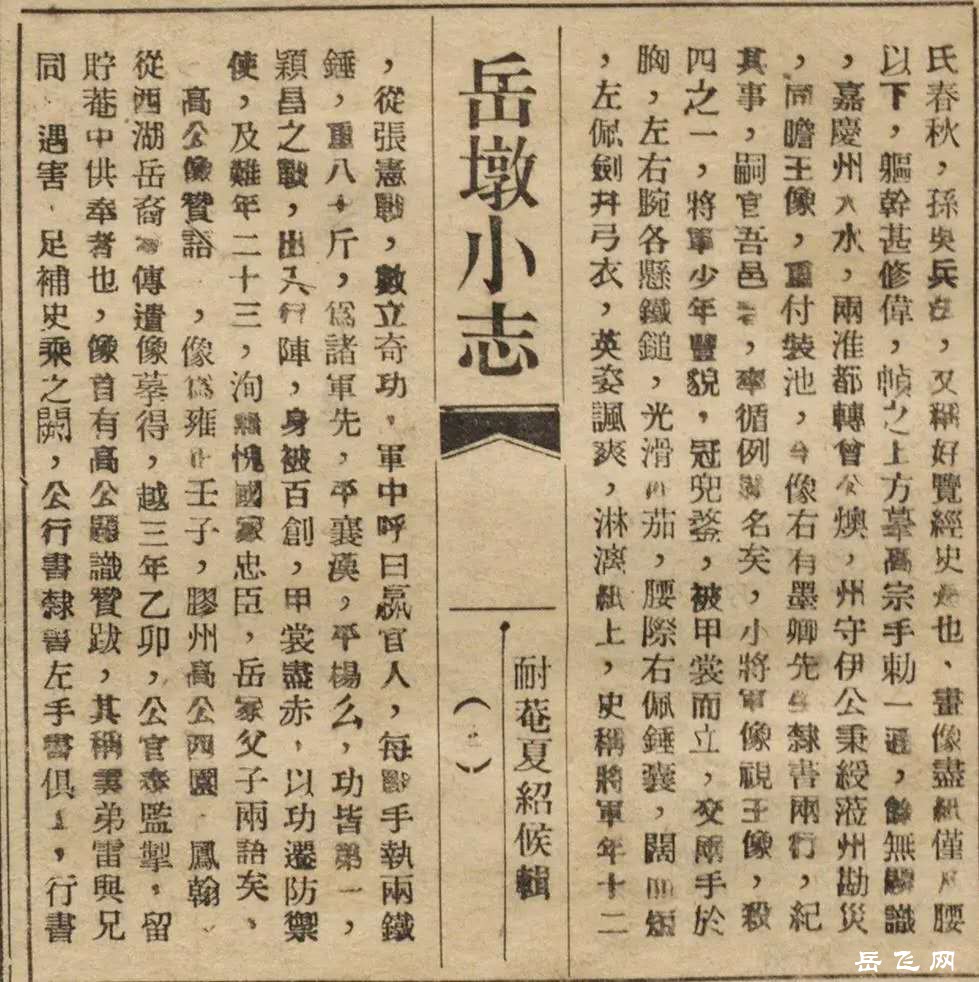 岳墩小志
耐菴夏紹候輯
氏春秋，孫吳兵，又稱好覽經史也、畫像盡紙僅及腰
以下，軀幹甚修偉，幀之上方摹高宗手勅一通，餘無題識
，嘉慶州大水，兩淮都轉曾公燠，州守伊公秉綬蒞州勘災
，同瞻王像，重付裝池，今像右有墨卿先生隸書兩行，紀
其事，嗣官吾邑者，率循例署名矣，小將軍像視王像，殺
四之一，將軍少年豐貌，冠兜鍪，被甲裳而立，交兩手於
胸，左右腕各懸鐵鎚，光滑茄，腰際右佩錘囊，闊而短
，左佩劍幷弓衣，英姿諷爽，淋漓紙上，史稱將軍年十二
，從張憲戰，數立奇功，軍中呼曰贏官人，每戰手執兩鐵
錘，重八十斤，爲諸軍先，平襄漢，平楊么，功皆第一，
穎昌之戰，出入行陣，身被百創，甲裳盡赤，以功遷防禦
使，及難年二十三，洵無愧國家忠臣，岳家父子兩語矣、
高公像贊語，像爲雍正壬子，膠州高公西園鳳翰
從西湖岳裔傳遺像摹得，越三年乙卯，公官泰監掣，留
貯菴中供奉者也，像首有高公題識贊跋，其稱雲弟雷與兄
同遇害，足補史乘之闕，公行書隸書左手書俱工，行書
岳飞网